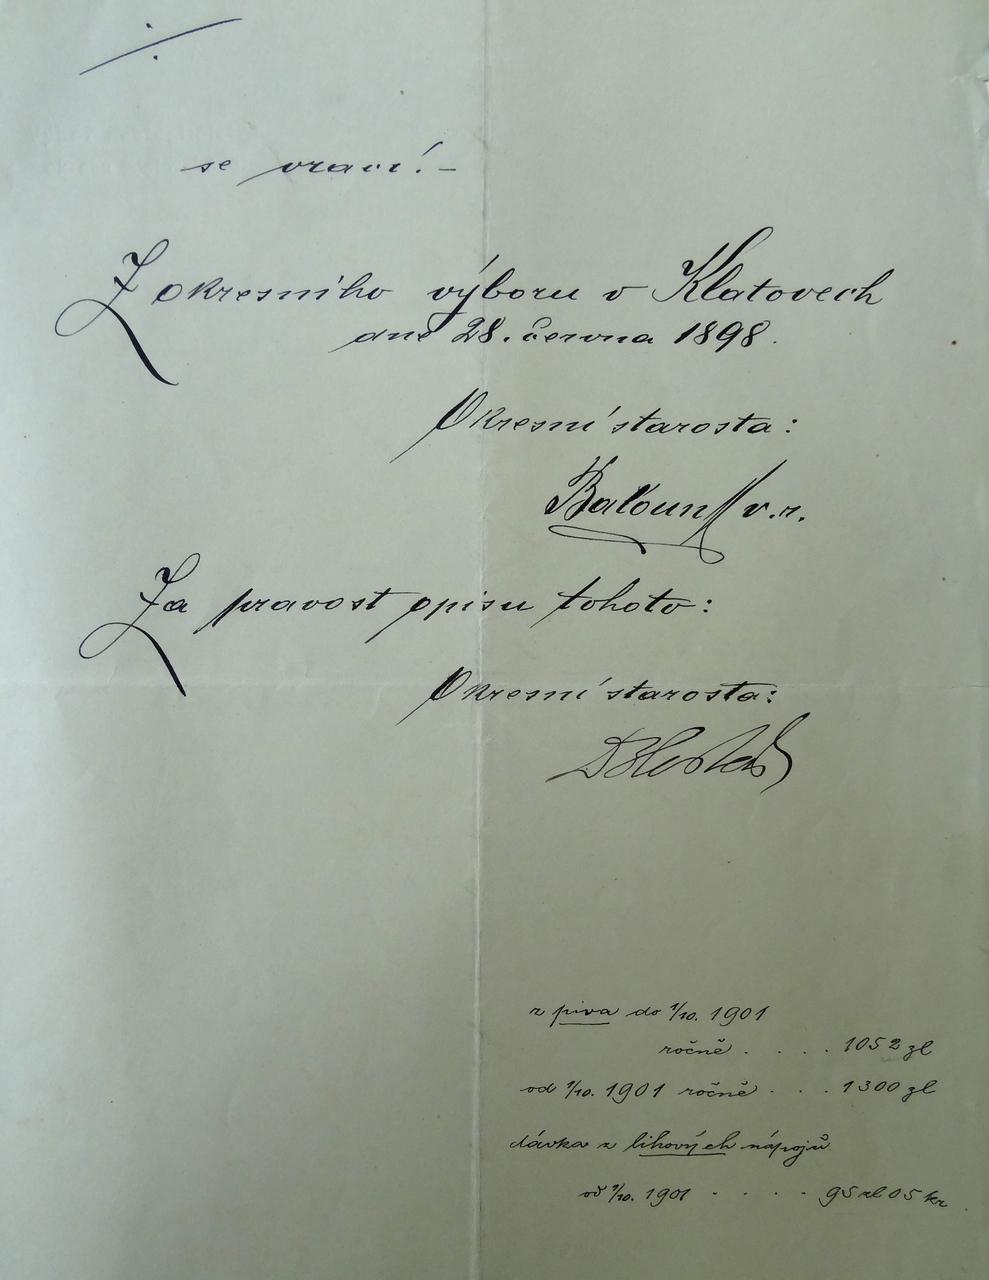 se vrací! –
Z okresního výboru v Klatovech
dne 28. června 1898.
Okresní starosta:
v. r.
Za pravost opisu tohoto:
Okresní starosta:
z piva do 1/10. 1901
ročně . . . . 1052 zl
od 1/10. 1901 ročně . . . 1300 zl
dávka z lihových nápojů
od 1/10. 1901 . . . . 95 zl 05 kr.